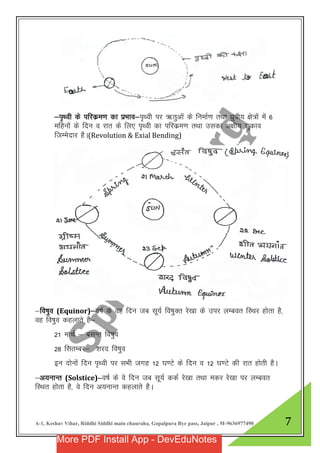 SUN
पृथ्वी की कक्षा
West to East
Earth
–पृथ्वी के परिक्रमण का प्रभाव–पृथ्वी पर ऋतुओं के निर्माण तथा ध्रुवीय क्षेत्रों में 6
महिनों के दिन व रात के लिए पृथ्वी का परिक्रमण तथा उसका अक्षीय झुकाव
जिम्मेदार है।(Revolution & Exial Bending)
बसंत विषुव (Spring Equinox)
21 March
Spring
Winter
21 June
SUN
22 Dec
ग्रीष्म
अयनांत
Summer
Solstice
Summer
23 Sep
Autumn
शीत अयनांत
Winter Solstice
शरद विषुव
Autumn Equinox
–विषुव (Equinor)–वर्ष के वह दिन जब सूर्य विषुक्त रेखा के उपर लम्बवत स्थिर होता है,
वह विषुव कहलाते है–
21 मार्च – बसन्त विषुव
28 सितम्बर– शरद विषुव
इन दोनों दिन पृथ्वी पर सभी जगह 12 घण्टे के दिन व 12 घण्टे की रात होती है।
–अयनान्त (Solstice)–वर्ष के वे दिन जब सूर्य कर्क रेखा तथा मकर रेखा पर लम्बवत
स्थित होता है, वे दिन अयनान्त कहलाते है।
A-1, Keshav Vihar, Riddhi Siddhi main chauraha, Gopalpura Bye pass, Jaipur , M-9636977490
7
More PDF Install App - DevEduNotes